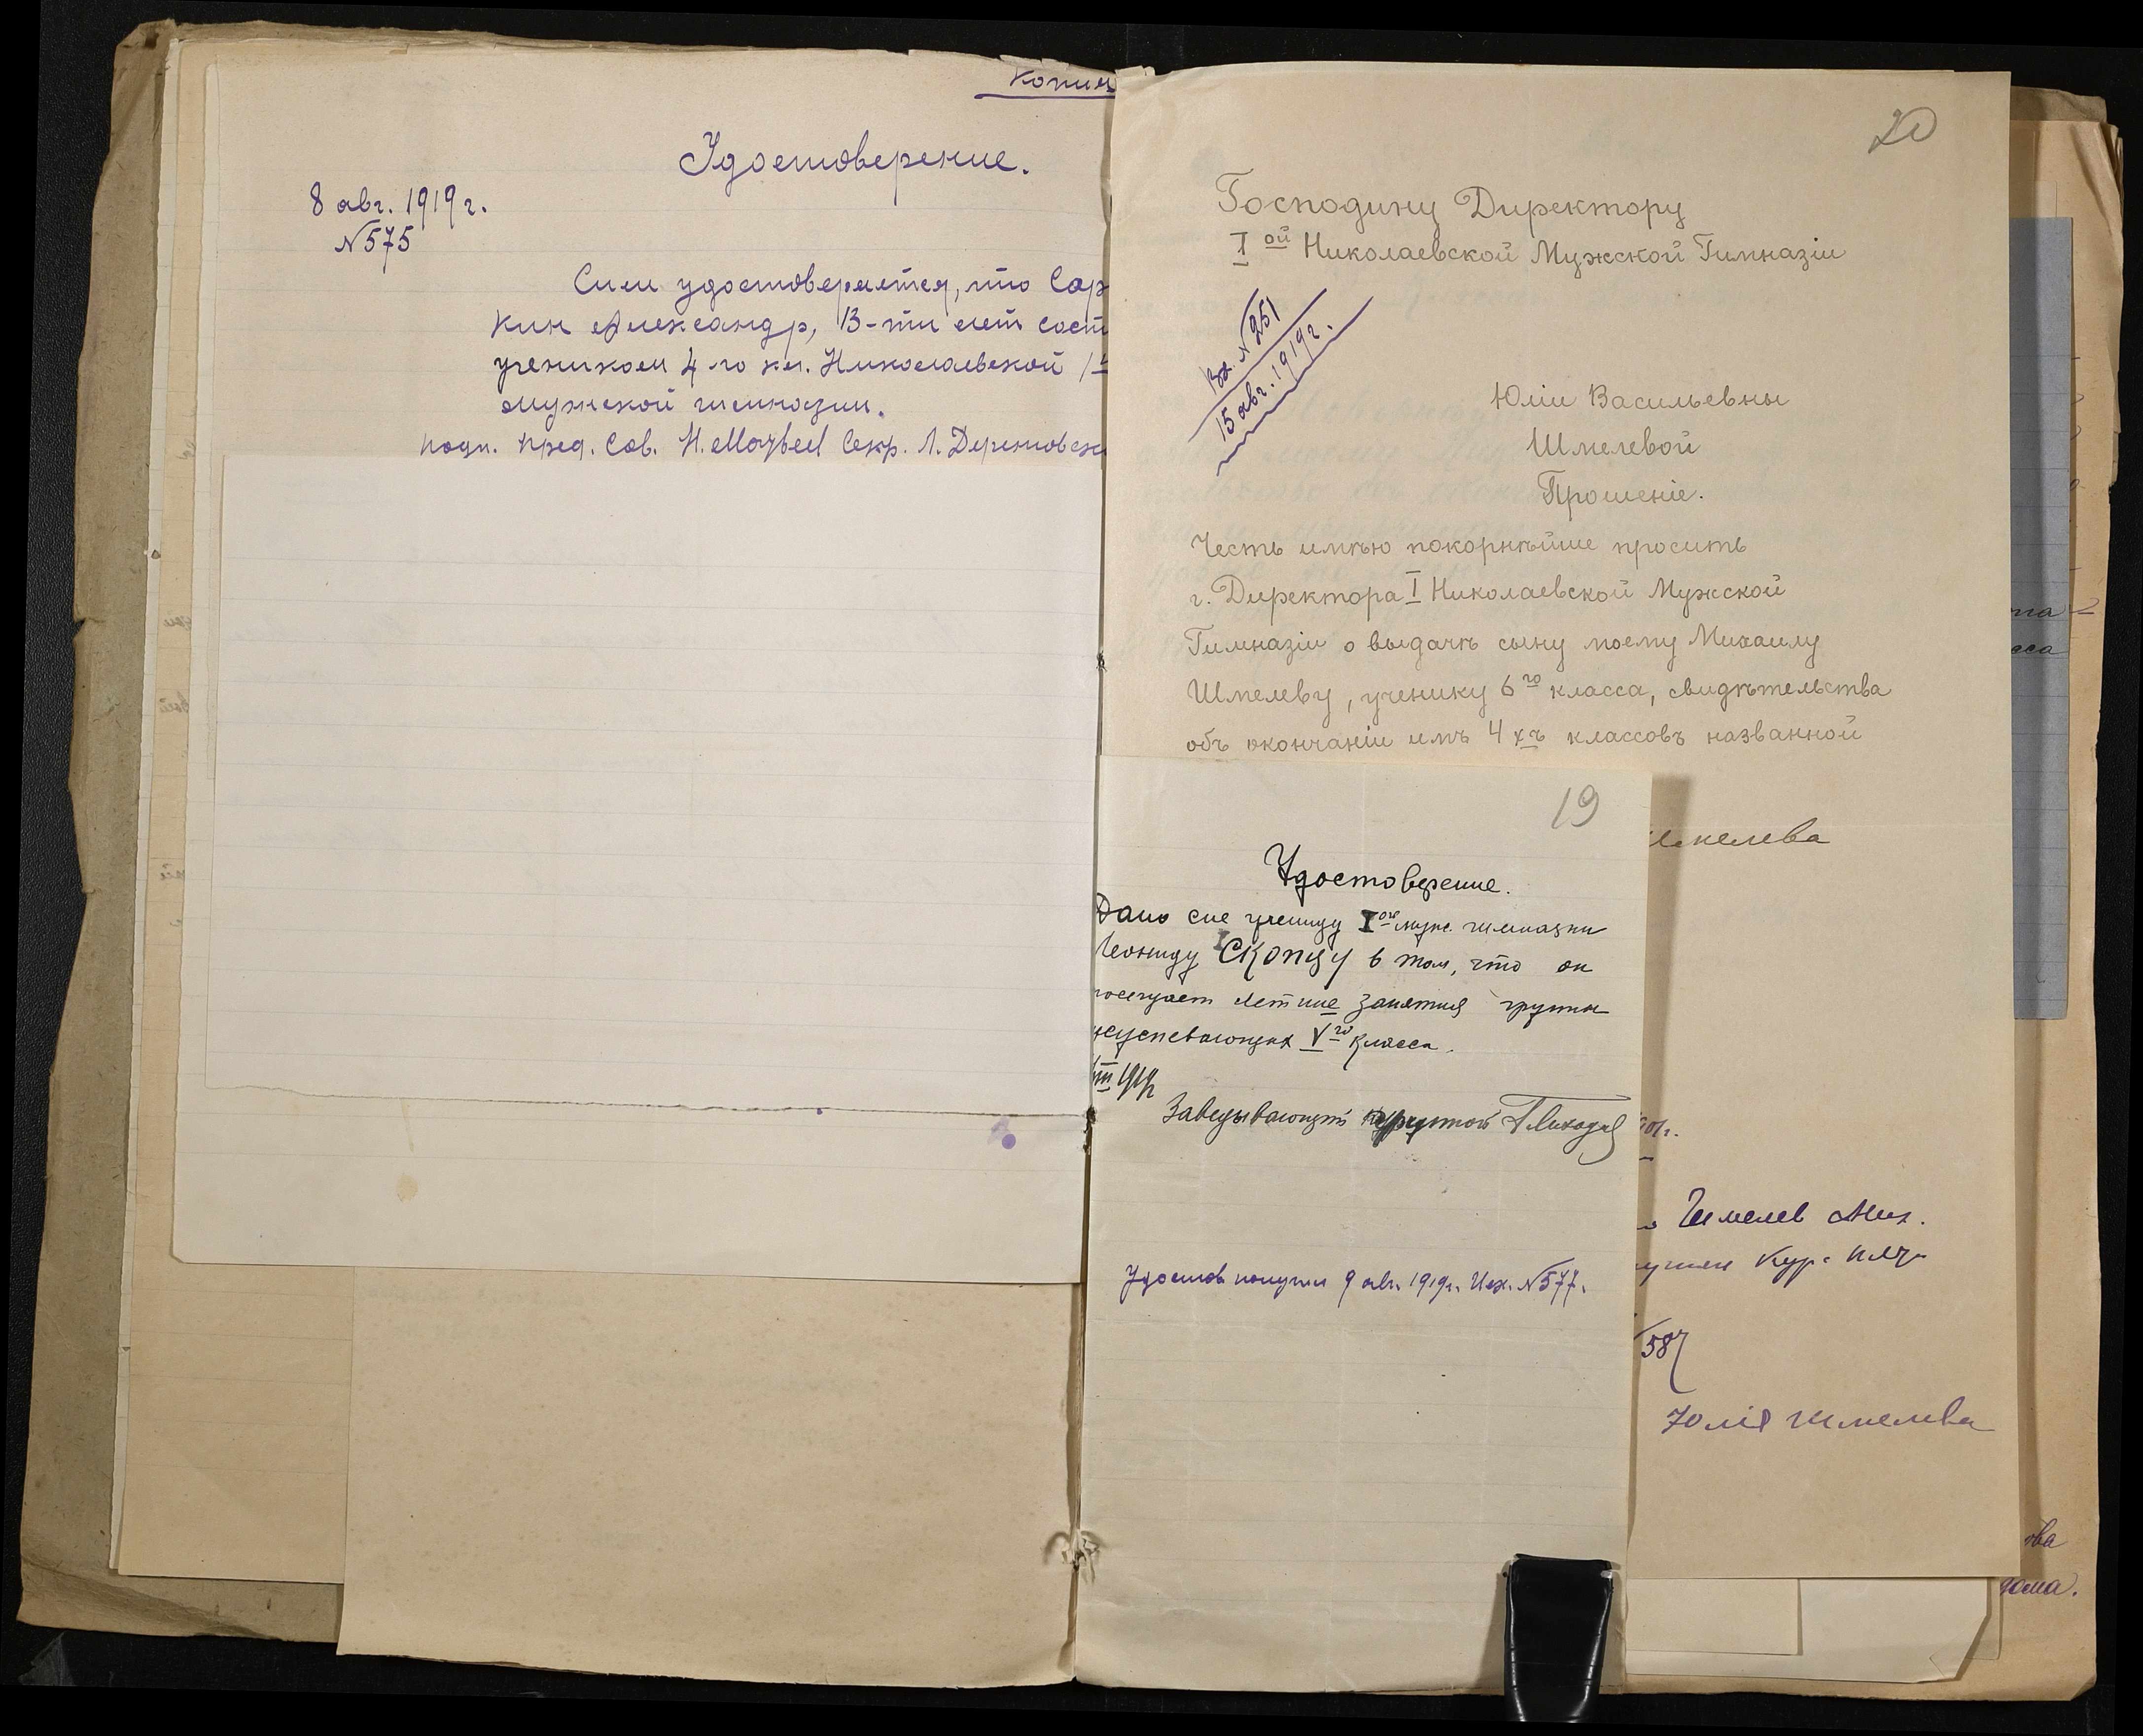 Копия
Удостоверение.
8 авг. 1919 г.
№ 575
Сим удостоверяется, что Сар
кин Александр, 13-ти лет сост
учеником 4-го кл. Николаевской 1й
мужской гимназии.
подп. Пред. Сов. Секр. Л.
20
Господину Директору
Iой Николаевской Мужской Гимназіи
Вх. № 251
15 авг. 1919 г.
Юліи Васильевны
Шмелевой
Прошеніе.
Честь имѣю покорнѣйше просить
г. Директора I Николаевской Мужской
Гимназіи о выдачѣ сыну моему Михаилу
Шмелеву, ученику 6го класса, свидѣтельства
объ окончаніи имъ 4хъ классовъ названной
мелева
19
Удостоверение.
Дано сие ученику Iой муж. гимназии
Леониду Скопцу в том, что он
посещает летние занятия группы
неуспевающих Vго класса.
VIII 1919
Заведывающий группой
Удостов получил 9 авг. 1919 г. Исх. № 577.
Шмелев Мих.
587
Юлія Шмелева
ова
дома.